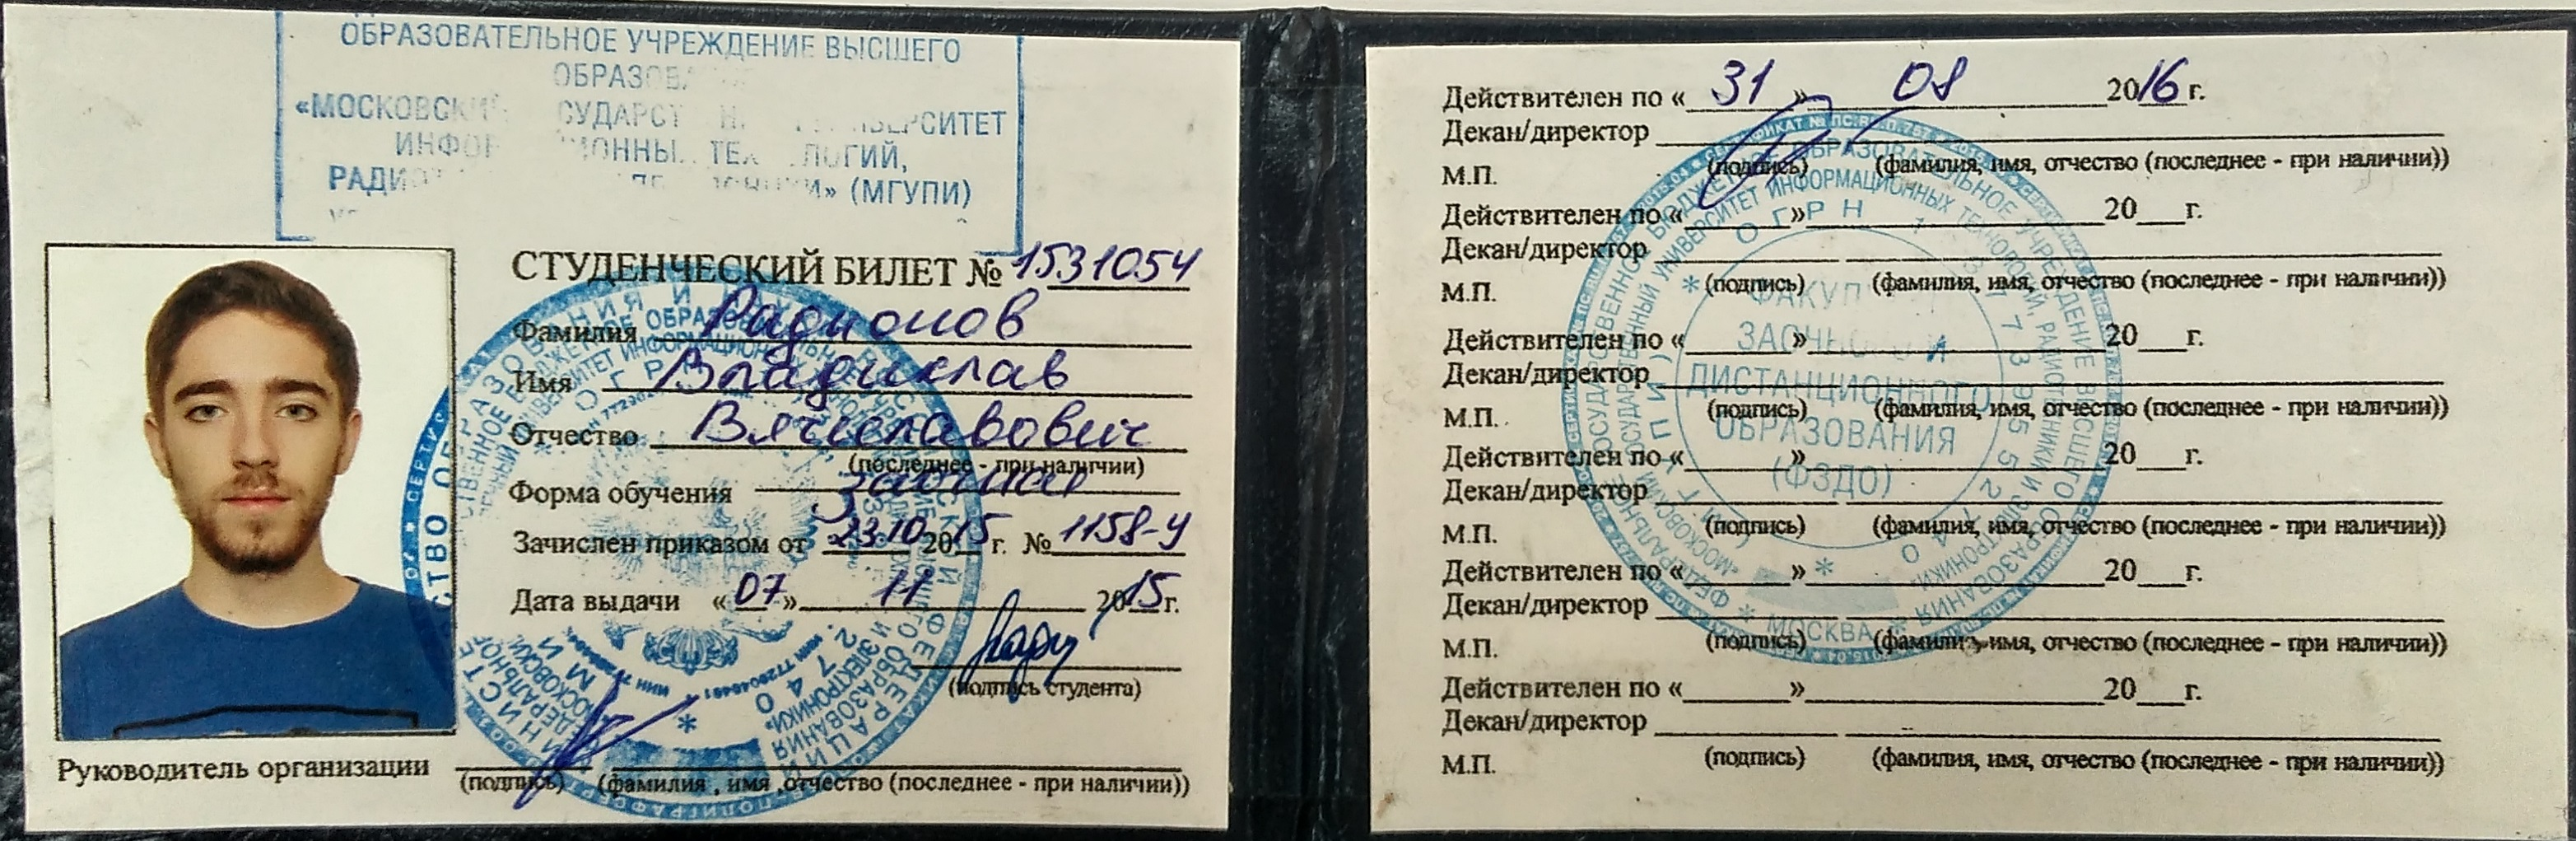 ОБРАЗОВАТЕЛЬНОЕ УЧРЕЖДЕНИЕ ВЫСШЕГО
«МОСКОВСКИЙ
РАДИО (МГУПИ)
СТУДЕНЧЕСКИЙ БИЛЕТ № 1531054
Фамилия Радионов
Имя Владислав
Отчество Вячеславович
(последнее - при наличии)
Форма обучения заочная
Зачислен приказом от 23.10 2015 г. № 1158-У
Дата выдачи «07» 11 2015г.
(подпись студента)
Руководитель организации
(подпись) (фамилия, имя, отчество (последнее - при наличии))
Действителен по «31» 08 2016 г.
Декан/директор
М.П. (подпись) (фамилия, имя, отчество (последнее - при наличии))
Действителен по «___»___20___г.
Декан/директор
М.П. (подпись) (фамилия, имя, отчество (последнее - при наличии))
Действителен по «___»___20___г.
Декан/директор
М.П. (подпись) (фамилия, имя, отчество (последнее - при наличии))
Действителен по «___»___20___г.
Декан/директор
М.П. (подпись) (фамилия, имя, отчество (последнее - при наличии))
Действителен по «___»___20___г.
Декан/директор
М.П. (подпись) (фамилия, имя, отчество (последнее - при наличии))
Действителен по «___»___20___г.
Декан/директор
М.П. (подпись) (фамилия, имя, отчество (последнее - при наличии))
ОГРН
ЗАОЧНОГО И
ДИСТАНЦИОННОГО
ОБРАЗОВАНИЯ
(ФЗДО)
МОСКВА